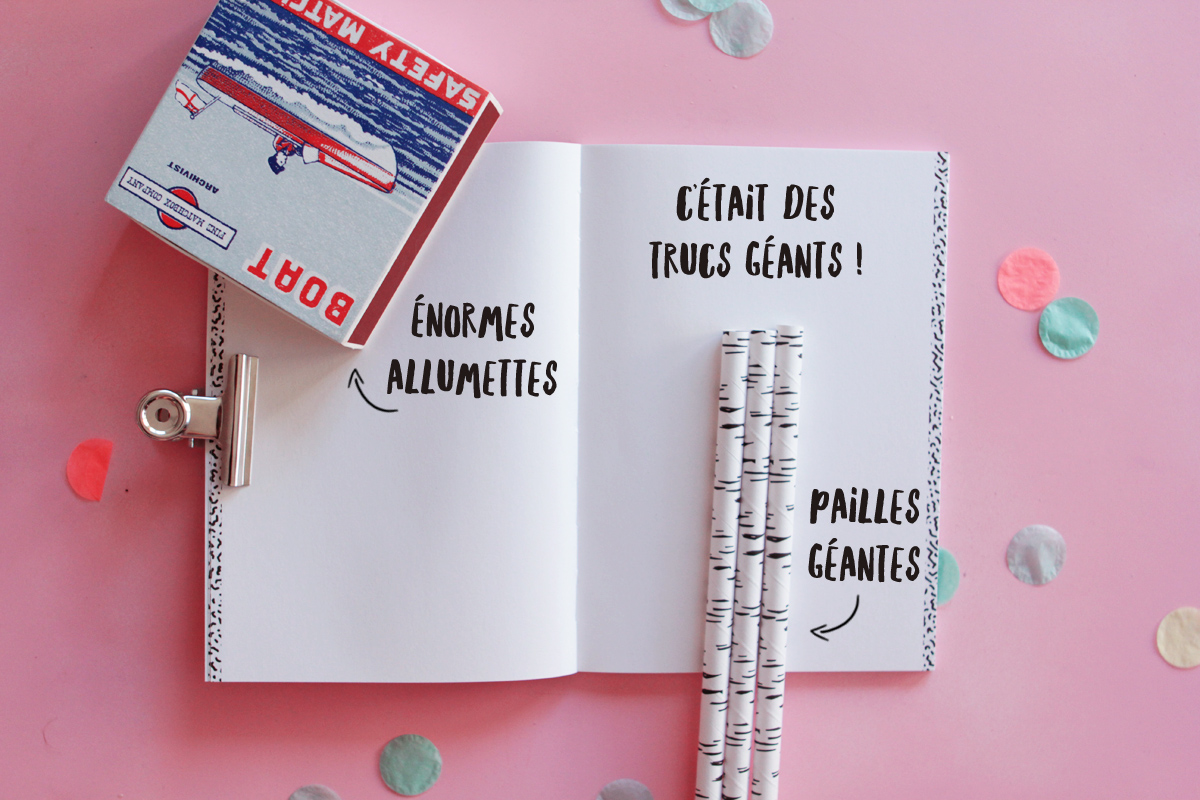 SAFETY MATCH
ARCHIVIST
FINE MATCHBOX COMPANY
BOAT
C'ÉTAIT DES
TRUCS GÉANTS !
ÉNORMES
ALLUMETTES
PAILLES
GÉANTES